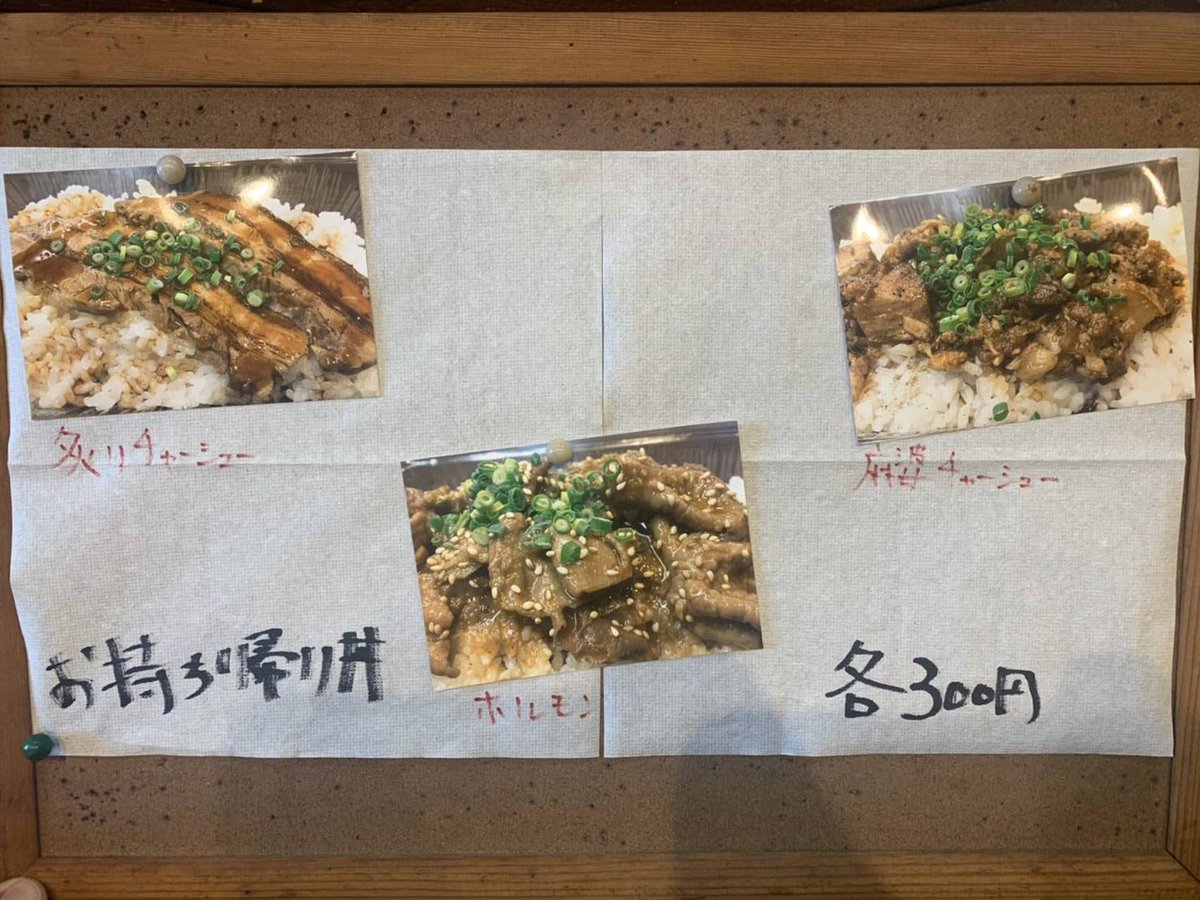 炙りチャーシュー
麻婆チャーシュー
ホルモン
お持ち帰り丼
各300円